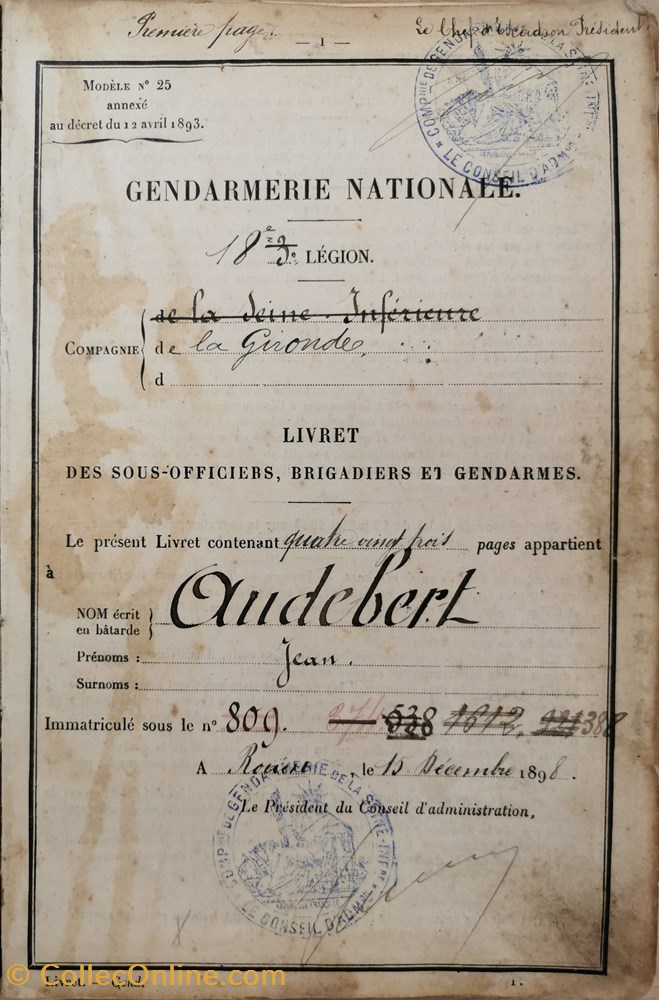 Première page. — 1 — Le Chef d'Escadron Président
COMPnie DE GENDARMERIE DE LA SEINE-INFre
LE CONSEIL D'ADMon
MODÈLE N° 25
annexé
au décret du 12 avril 1893.
GENDARMERIE NATIONALE.
18e 3e LÉGION.
de la Seine-Inférieure
COMPAGNIE de la Gironde,
d
LIVRET
DES SOUS-OFFICIERS, BRIGADIERS ET GENDARMES.
Le présent Livret contenant quatre vingt trois pages appartient
à
NOM écrit
en bâtarde
Audebert
Prénoms : Jean.
Surnoms :
Immatriculé sous le n° 809. 538 1612, 388
A Rouen, le 15 Décembre 1898.
Le Président du Conseil d'administration,
COMPnie DE GENDARMERIE DE LA SEINE-INFre
LE CONSEIL D'ADMon
Livret. — Gend. 1.
© CollecOnline.com